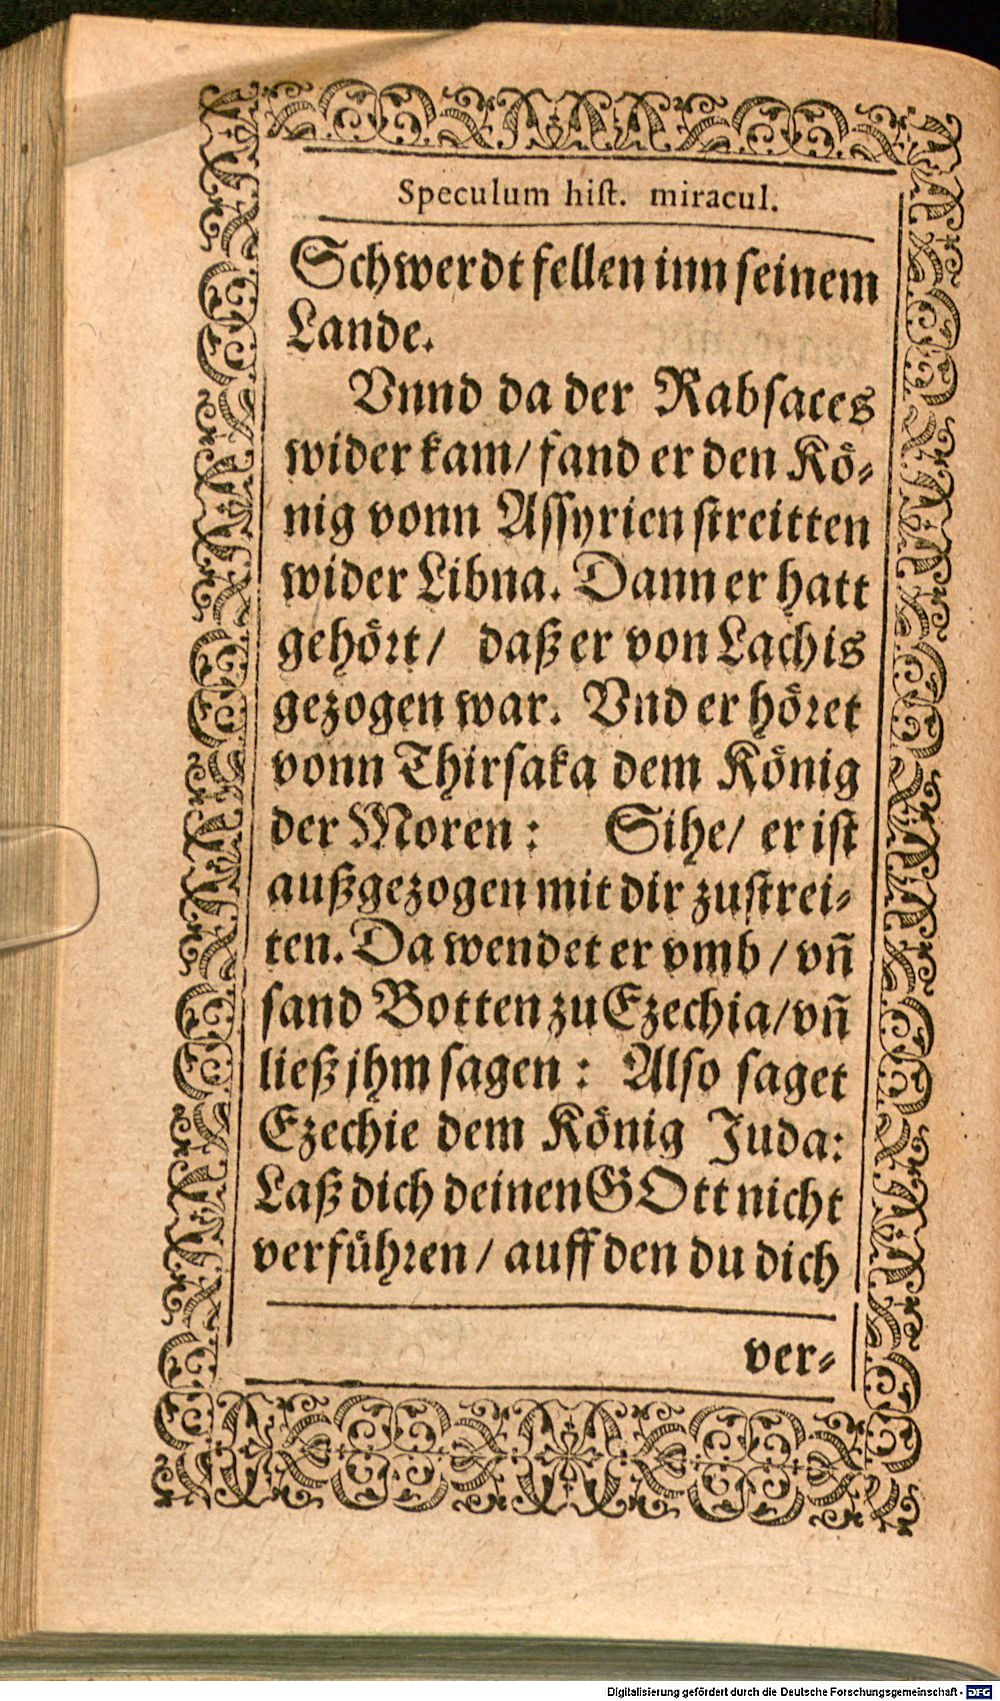 Speculum hiſt. miracul.
Schwerdt fellen inn ſeinem
Lande.
Vnnd da der Rabſaces
wider kam/ fand er den Kö⸗
nig vonn Aſſyrien ſtreitten
wider Libna. Dann er hatt
gehöꝛt/ daß er von Lachis
gezogen war. Vnd er höꝛet
vonn Thirſaka dem König
der Moren: Sihe/ er iſt
außgezogen mit dir zuſtrei⸗
ten. Da wendet er vmb / vn̄
ſand Botten zu Ezechia/ vn̄
ließ jhm ſagen: Alſo ſaget
Ezechie dem König Juda:
Laß dich deinen GOtt nicht
verfühꝛen / auff den du dich
ver⸗
Digitalisierung gefördert durch die Deutsche Forschungsgemeinschaft - DFG